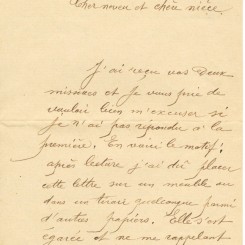 Cher neveu et chère nièce.
J'ai reçu vos deux
missives et je vous prie de
vouloir bien m'excuser si
je n'ai pas répondu à la
première. En voici le motif:
après lecture j'ai dû placer
cette lettre sur un meuble ou
dans un tiroir quelconque parmi
d'autres papiers. Elle s'est
égarée et ne me rappelant